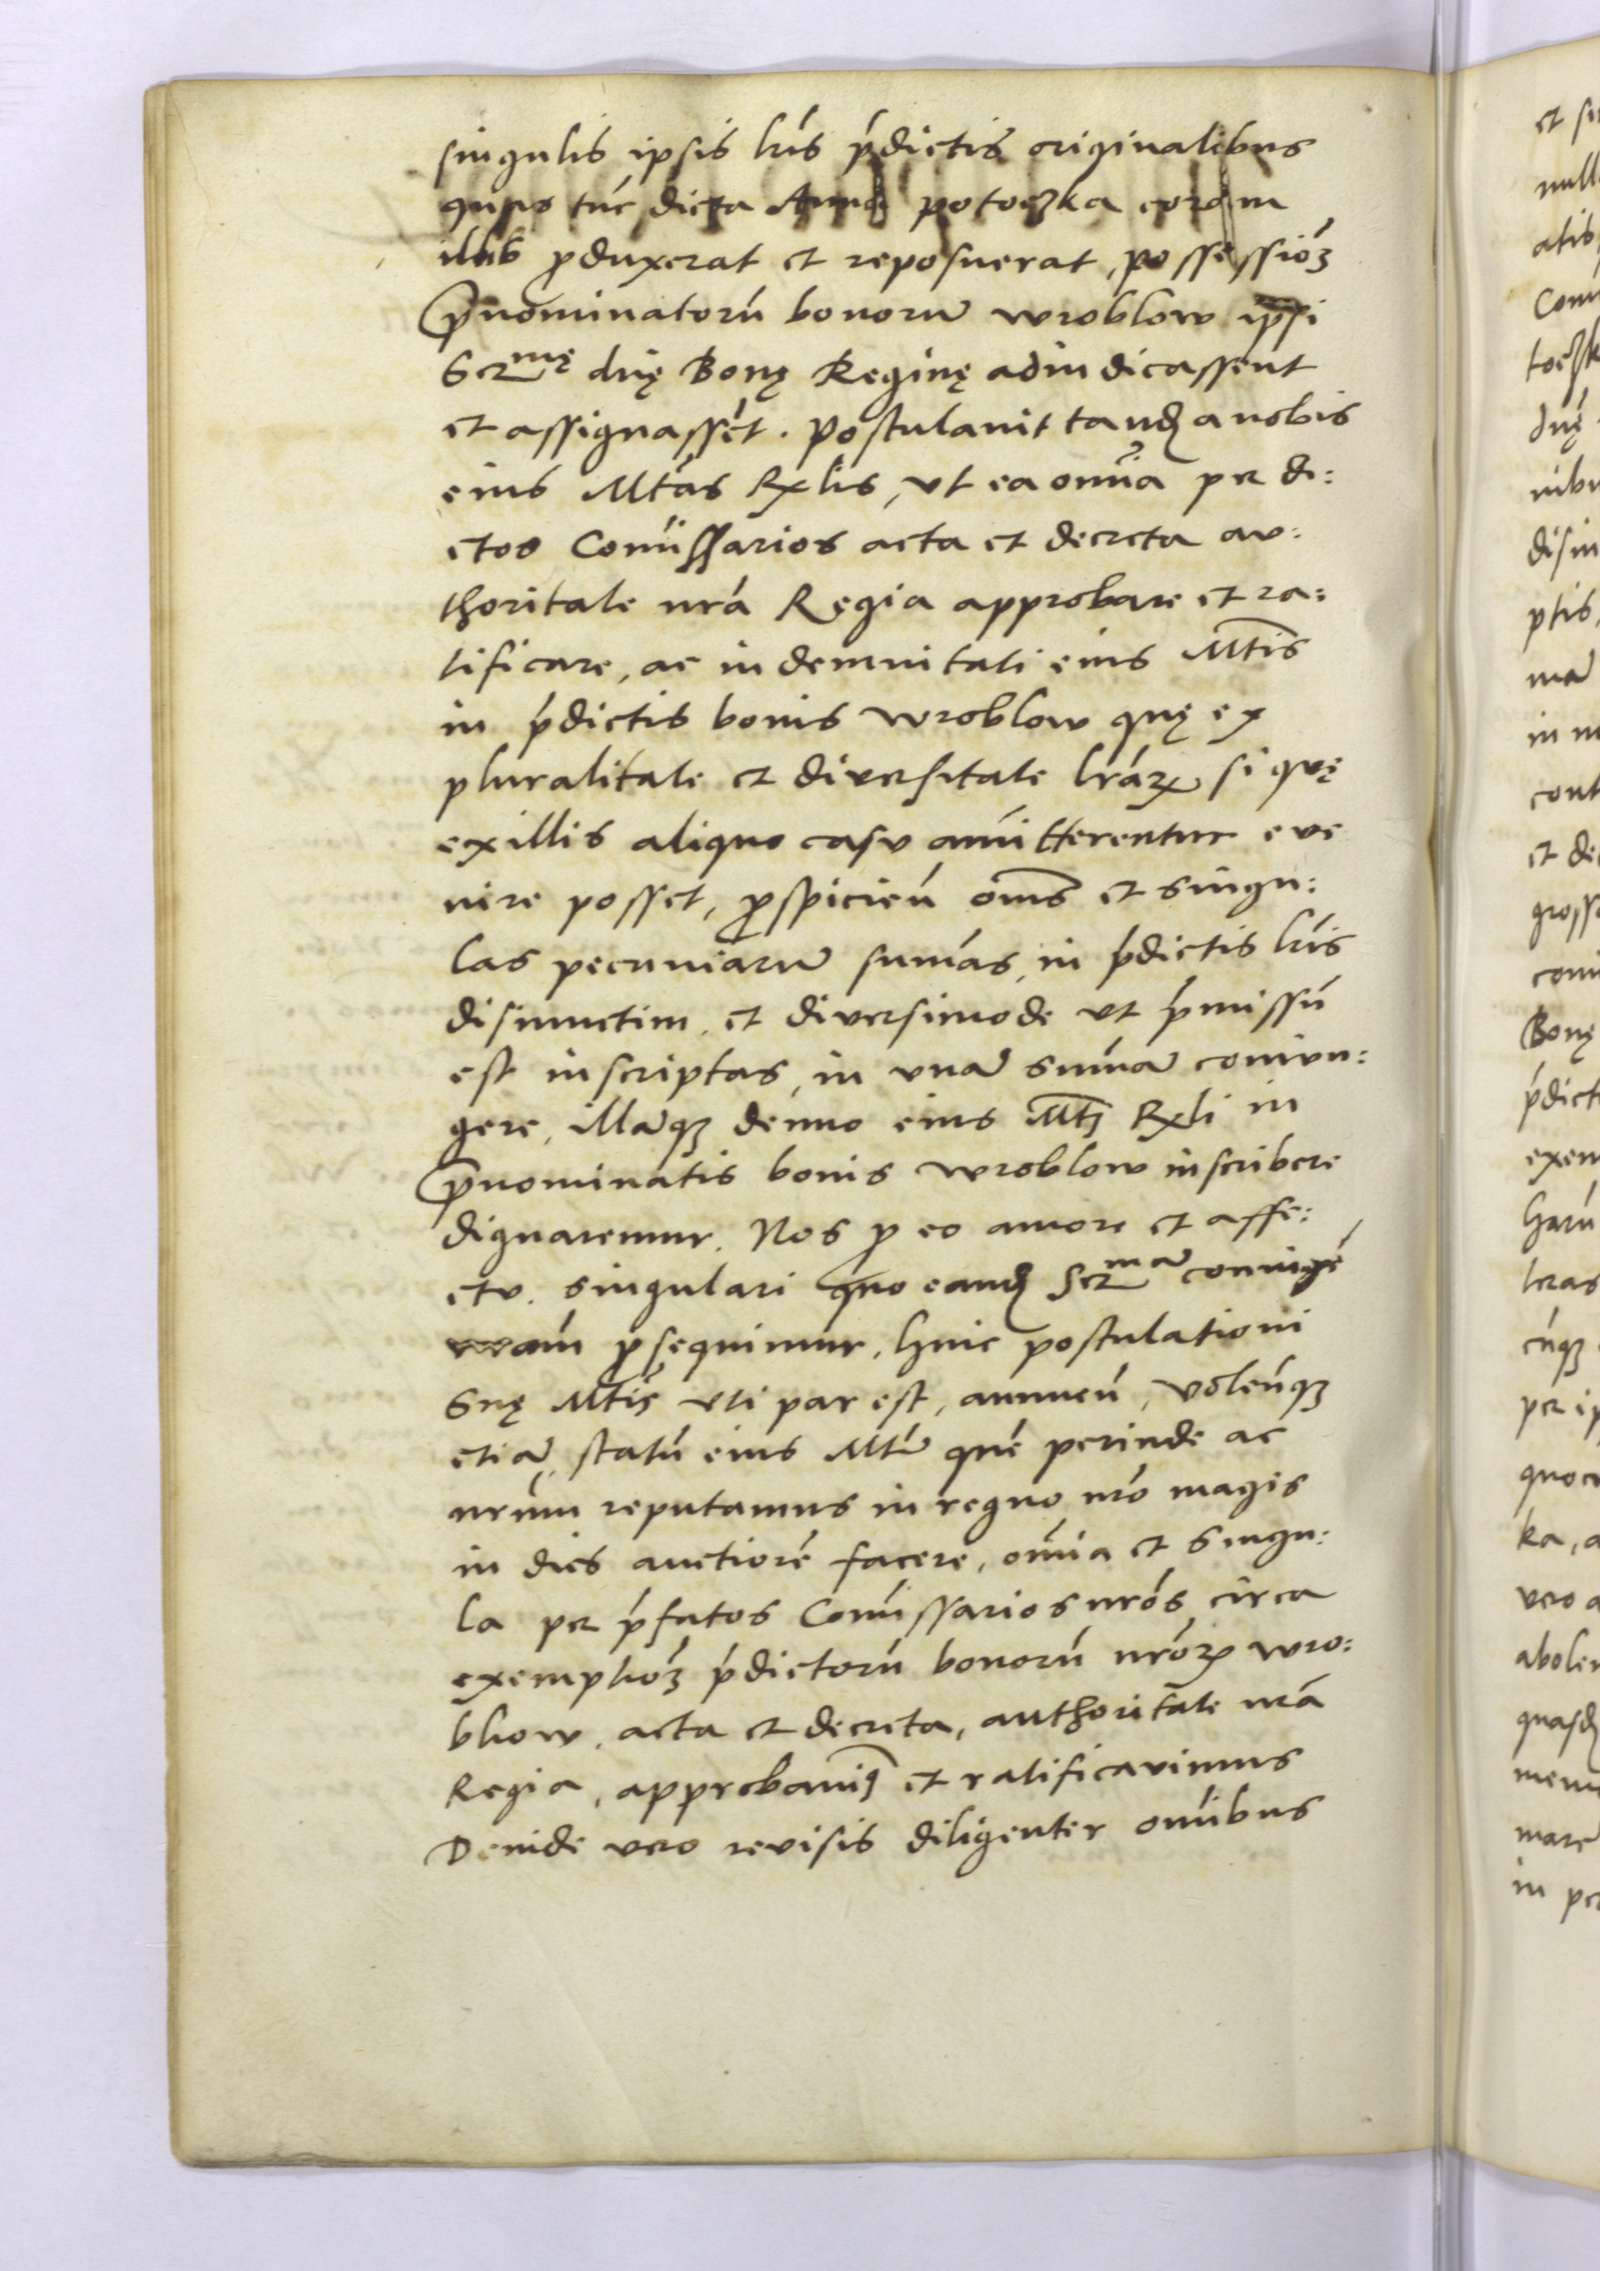 singulis ipsis lris pdictis originalibus
quas tūc dicta Anna potoczka coram
illis pduxerat et reposuerat, possessioēm
p̄nominatorū bonorū wroblow ipsi
Sermę dnę Bonę Reginę adiudicassent
et assignassēt. Postulavit tandē a nobis
eius Mtas Rxlis, ut ea omīa per di:
ctos Comīssarios acta et decreta au:
thoritate nrā Regia approbare et ra:
tificare, ac indemnitati eius Mtis
in pdictis bonis wroblow quę ex
pluralitate et diversitate lrarꝝ si quę
ex illis aliquo casu amitterentur eve
nire posset, pspicieñ om̄s et singu:
las pecuniarū sum̄as, in pdictis lris
disiunctim et diversimode ut pmissū
est inscriptas, in unā sum̄ā coniun:
gere, illāqꝫ denuo eius Mti Rxli in
p̄nominatis bonis wroblow inscribere
dignaremur. Nos p eo amore et affe:
ctu singulari quo eandē Sermā coniugē
nram psequimur, huic postulationi
Suę Mtis uti par est, annueñ, volenqꝫ
etiā statū eius Mtis quē perinde ac
nrum reputamus in regno nro magis
in dies auctiorē facere, om̄ia et singu:
la per pfatos Comīssarios nros circa
exemptioēm pdictorū bonorū nrorꝝ wro:
blow, acta et decreta, authoritate nrā
Regia, approbavimꝰ et ratificavimus
Deinde vero revisis diligenter omībus